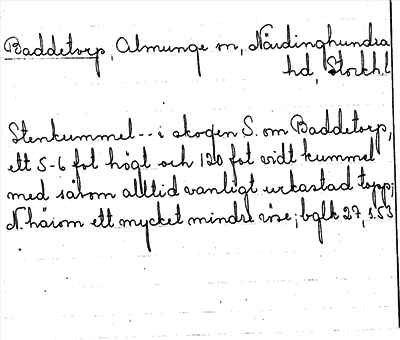 Baddetorp, Almunge sn, Närdinghundra
hd, Stockh.l
Stenkummel-- i skogen S. om Baddetorp,
ett 5-6 fot högt och 120 fot vidt kummel
med såsom alltid vanligt urkastad topp;
N. härom ett mycket mindre röse; bglk 27, s.53